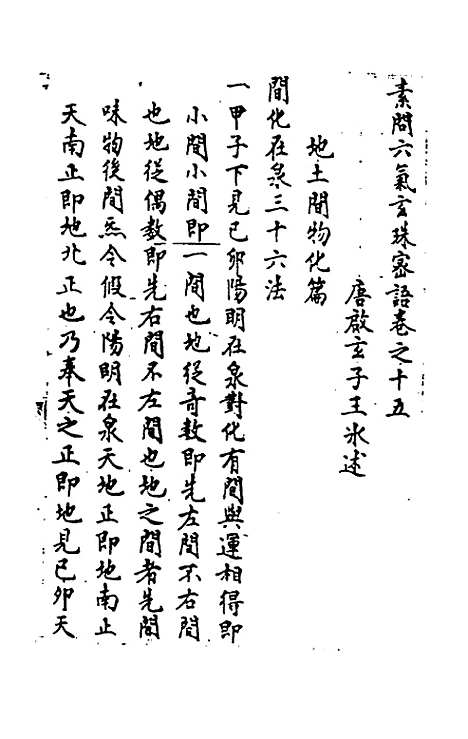 素問六氣玄珠密語卷之十五
唐啟玄子王冰述
地土間物化篇
間化在泉三十六法
一甲子下見己卯陽明在泉對化有間與運相得即
小間小間即一間也地從奇數即先左間不右間
也地從偶數即先右間不左間也地之間者先間
味物後間炁令假令陽明在泉天地正即地南正
天南正即地北正也乃奉天之正即地見己卯天